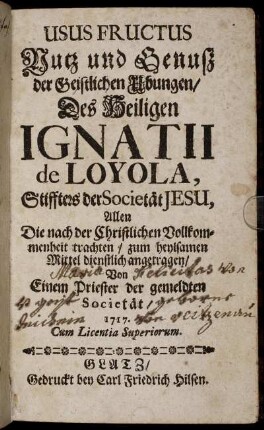 USUS FRUCTUS
Nutz und Genuß
der Geistlichen Übungen/
Des Heiligen
IGNATII
de LOYOLA,
Stiffters der Societät JESU,
Allen
Die nach der Christlichen Vollkom-
menheit trachten / zum heylsamen
Mittel dienstlich angetragen/
Maria Felicitas von
Von
Einem Priester der gemeldten
geborne
Societät/
von
1717.
Cum Licentia Superiorum.
GLATZ/
Gedruckt bey Carl Friedrich Hilsen.